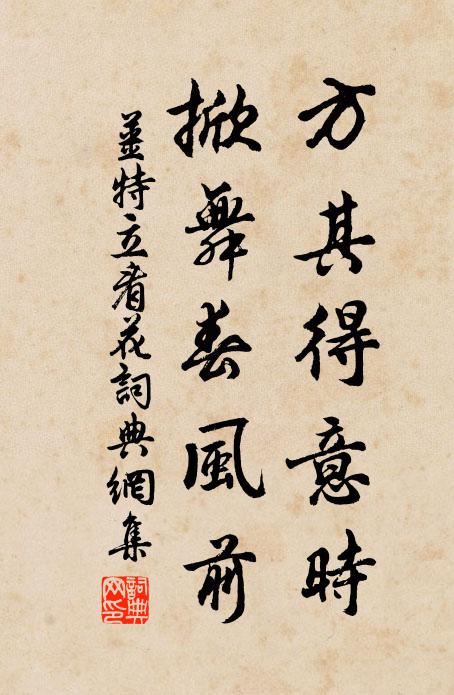 方其得意時
掀舞春風前
姜特立看花詞典網集
詞典網印